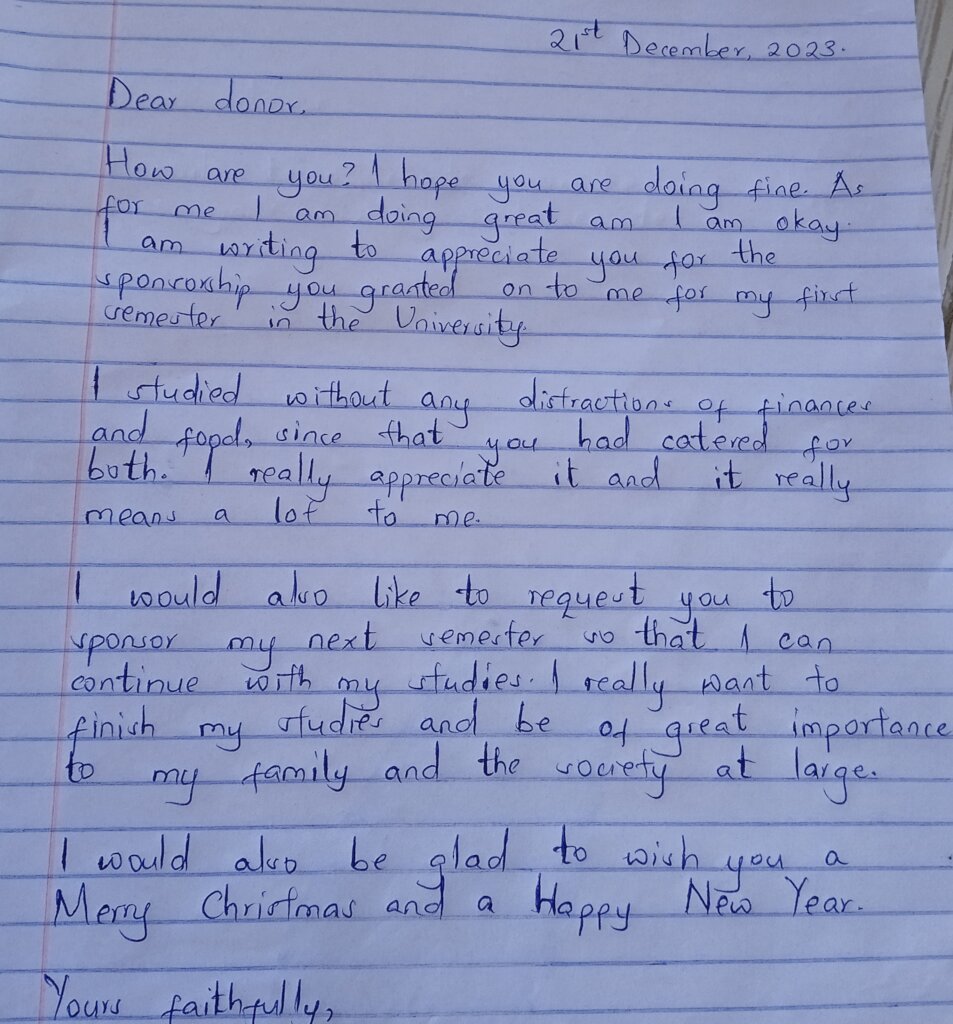 21st December, 2023.
Dear donor,
How are you? I hope you are doing fine. As
for me I am doing great am I am okay.
I am writing to appreciate you for the
sponsorship you granted on to me for my first
semester in the University.
I studied without any distractions of finances
and food, since that you had catered for
both. I really appreciate it and it really
means a lot to me.
I would also like to request you to
sponsor my next semester so that I can
continue with my studies. I really want to
finish my studies and be of great importance
to my family and the society at large.
I would also be glad to wish you a
Merry Christmas and a Happy New Year.
Yours faithfully,